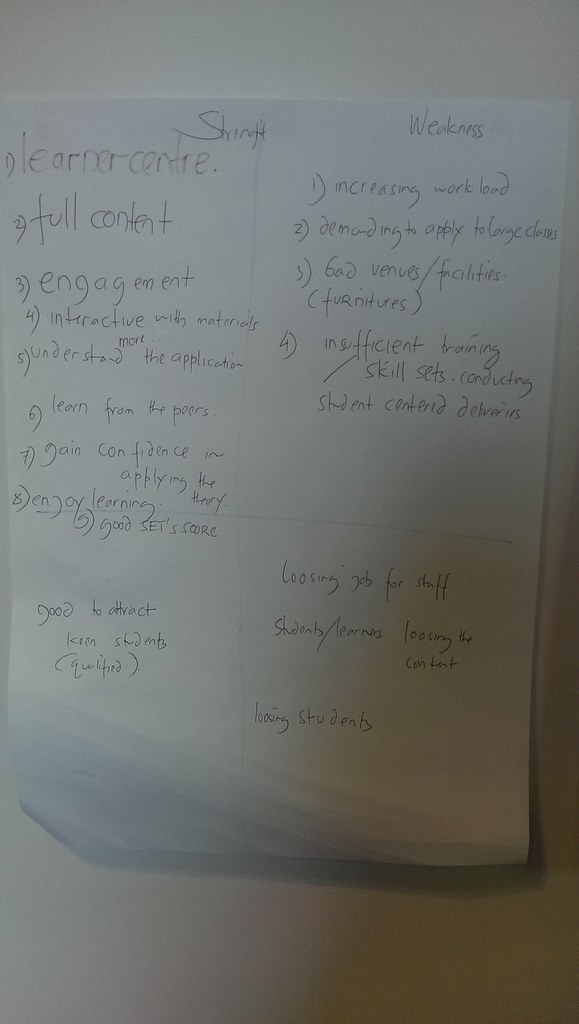 Strength
1) learner centre.
2) full content
3) engagement
4) interactive with materials
more
5) understand the application.
6) learn from the peers.
7) gain confidence in
applying the
theory.
8) enjoy learning.
9) good SET's SCORE
Weakness
1) increasing work load
2) demanding to apply to large classes
3) bad venues/facilities.
(furnitures)
4) insufficient training
/ skill sets. conducting
student centered deliveries.
good to attract
keen students
(qualified)
loosing job for staff
students/learners loosing the
content
loosing students